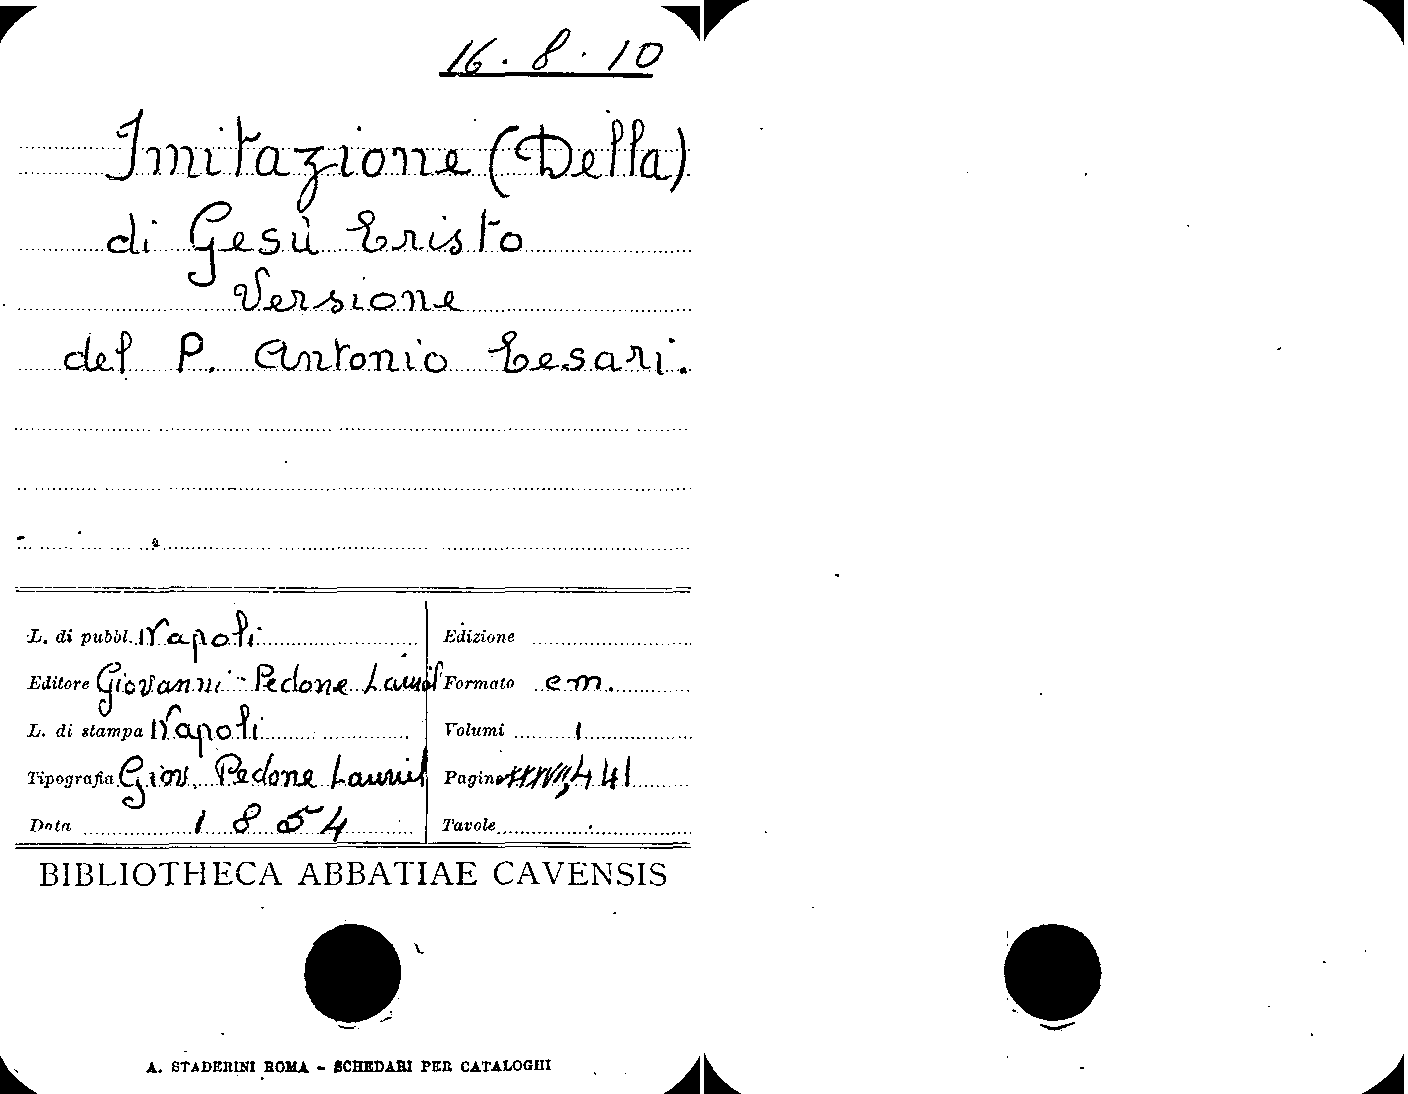 16.8.10
Imitazione (Della)
di Gesù Cristo
Versione
del P. Antonio Cesari.
L. di pubbl. Napoli
Editore Giovanni Pedone Lauriel
L. di stampa Napoli
Tipografia Giov. Pedone Lauriel
Data 1854
Edizione
Formato em.
Volumi 1
Pagine 441
Tavole
BIBLIOTHECA ABBATIAE CAVENSIS
A. STADERINI ROMA - SCHEDARI PER CATALOGHI